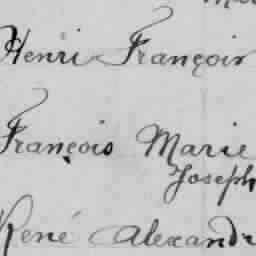 Henri François
François Marie
Joseph
René Alexandr